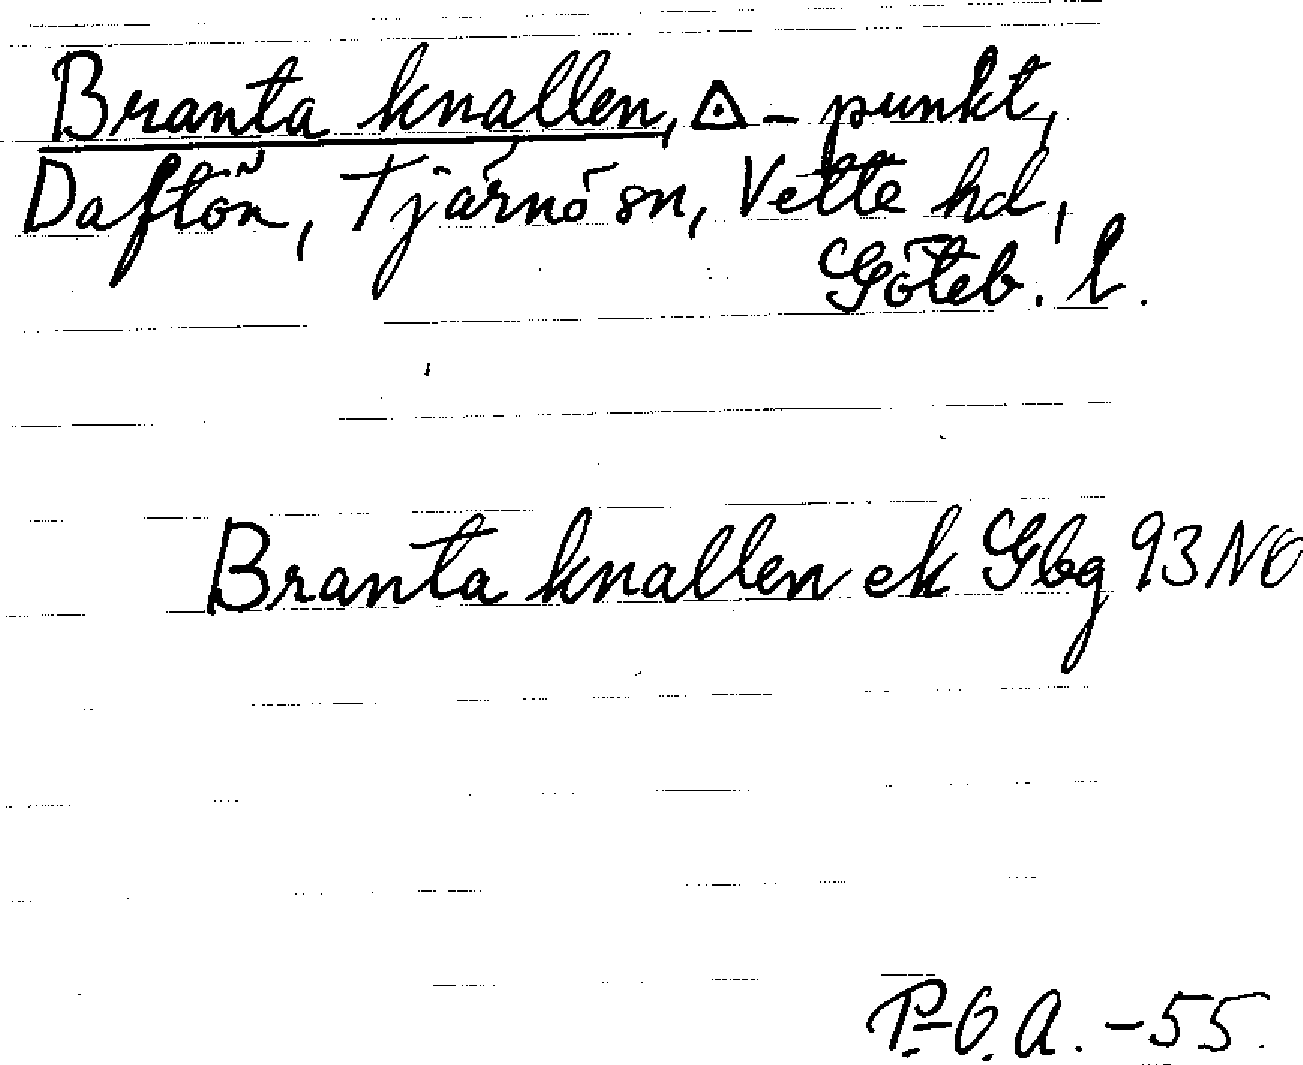 Branta knallen, △ - punkt,
Daftön, Tjärnö sn, Vette hd,
Göteb. l.
Branta knallen ek Gbg 93 NO
P.-O. A. -55.